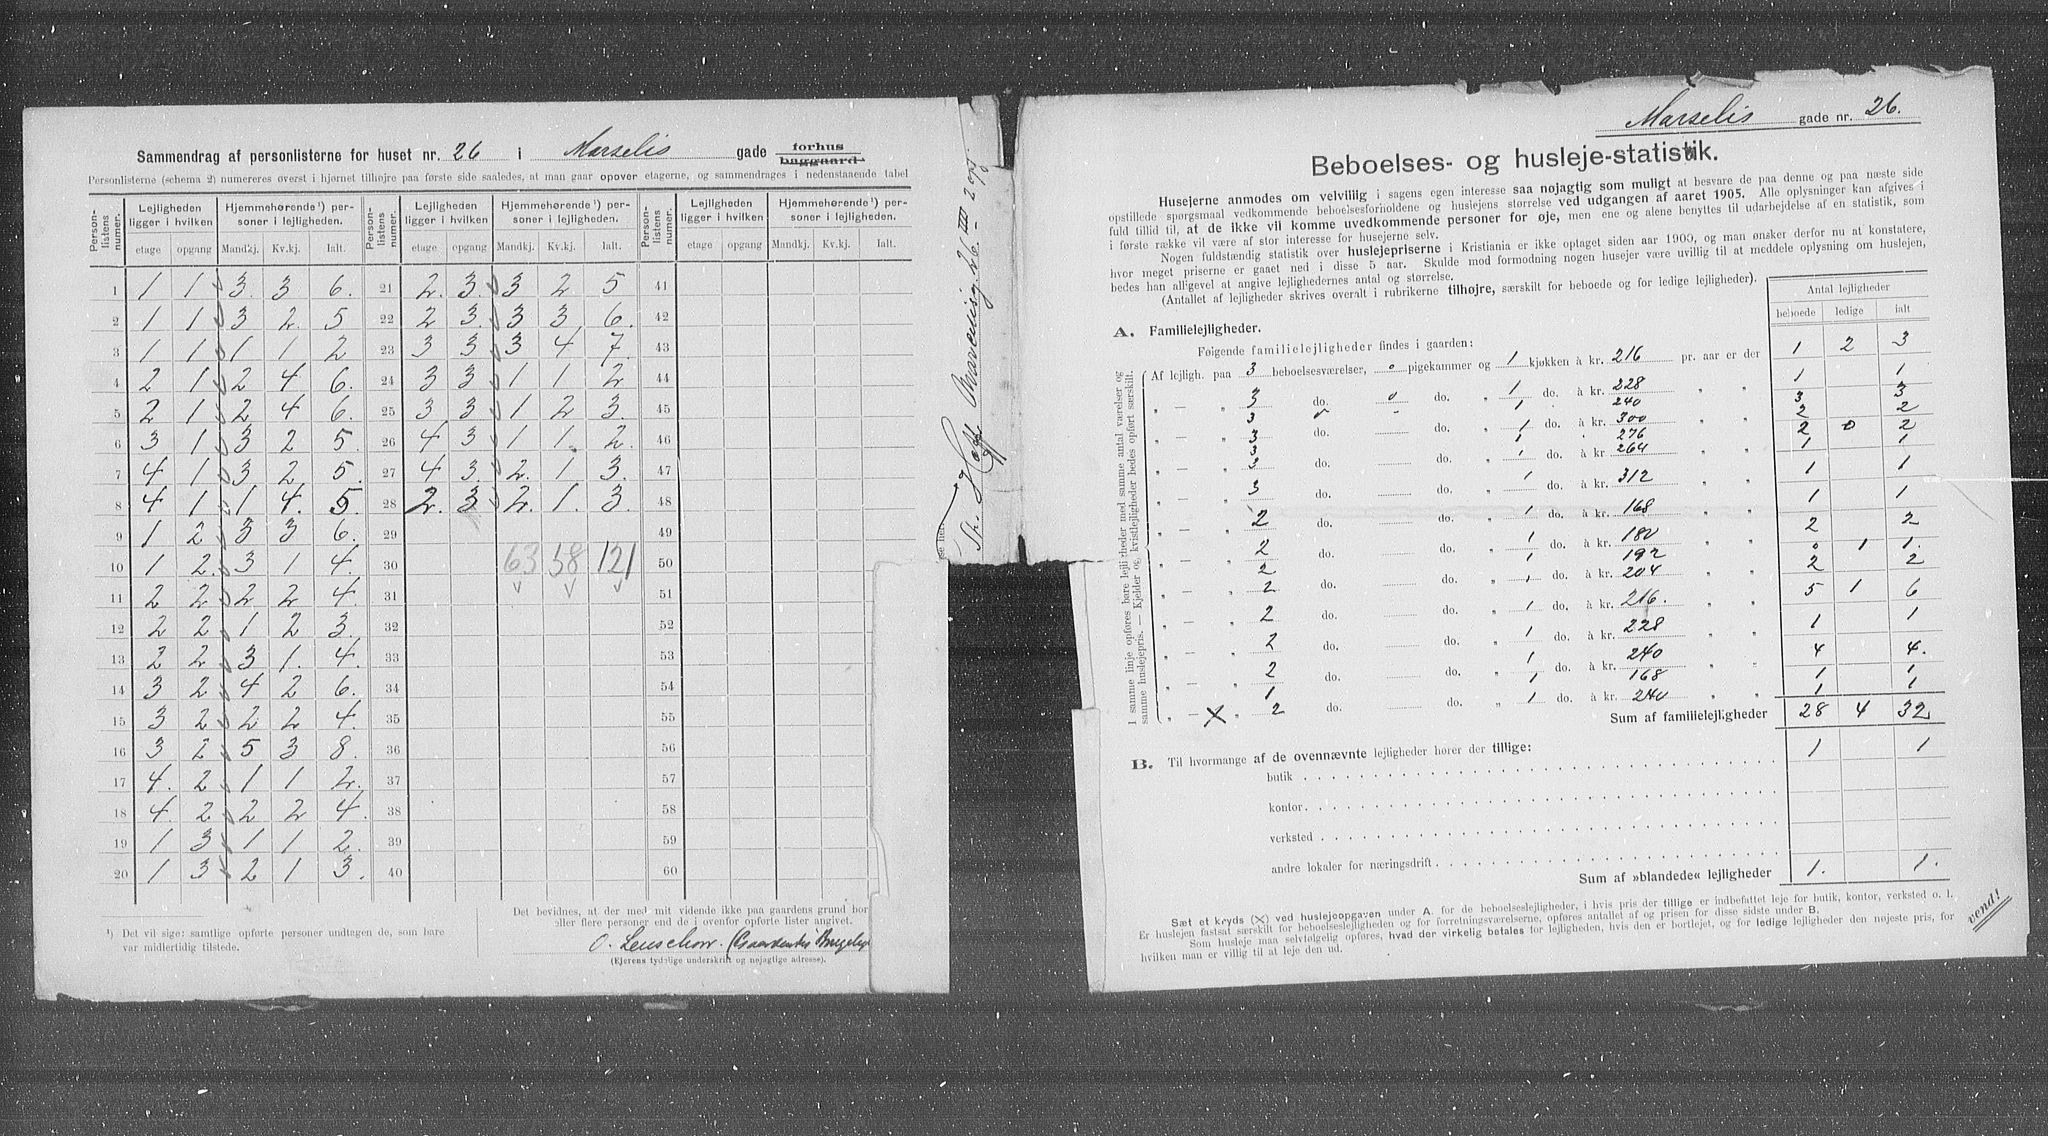 Sammendrag af personlisterne for huset nr. 26 i Marselis gade forhus
baggaard
Personlisterne (schema 2) numereres øverst i hjørnet tilhøjre paa første side saaledes, at man gaar opover etagerne, og sammendrages i nedenstaaende tabel
Personlistens numer. Lejligheden ligger i hvilken Hjemmehørende¹) personer i lejligheden. Personlistens numer. Lejligheden ligger i hvilken Hjemmehørende¹) personer i lejligheden. Personlistens numer. Lejligheden ligger i hvilken Hjemmehørende¹) personer i lejligheden.
etage opgang Mandkj. Kv.kj. Ialt. etage opgang Mandkj. Kv.kj. Ialt. etage opgang Mandkj. Kv.kj. Ialt.
1 1 1 3. 3 6. 21 2. 3. 3 2 5 41
2 1 1 3 2. 5 22 2 3. 3 3 6. 42
3 1 1 1 1 2 23 3 3 3 4 7. 43
4 2 1 2 4 6. 24 3 3 1 1 2 44
5 2 1 2 4 6. 25 3 3 1 2 3. 45
6 3 1 3 2 5 26 4 3 1 1. 2. 46
7 4 1 3 2 5. 27 4 3. 2. 1 3. 47
8 4 1 1 4. 5. 28 2. 3 2. 1. 3. 48
9 1 2 3 3 6. 29 49
10 1 2. 3 1 4. 30 63 58 121 50
11 2 2 2 2 4. 31 51
12 2 2 1 2 3. 32 52
13 2 2 3 1. 4. 33 53
14 3 2 4 2 6. 34 54
15 3 2 2 2 4. 35 55
16 3 2 5 3 8. 36 56
17 4. 2 1 1 2. 37 57
18 4. 2 2 2 4. 38 58
19 1 3 1 1 2. 39 59
20 1 3 2 1 3. 40 60
¹) Det vil sige: samtlige opførte personer undtagen de, som bare
var midlertidig tilstede.
Det bevidnes, at der med mit vidende ikke paa gaardens grund bor
eller flere personer end de i ovenfor opførte lister angivet.
O. Lenschow. (Gaardens Bregeby
(Ejerens tydelige underskrift og nøjagtige adresse).
Th. Hoff
Marselis gade nr. 26.
Beboelses- og husleje-statistik.
Husejerne anmodes om velvillig i sagens egen interesse saa nøjagtig som muligt at besvare de paa denne og paa næste side
opstillede spørgsmaal vedkommende beboelsesforholdene og huslejens størrelse ved udgangen af aaret 1905. Alle oplysninger kan afgives i
fuld tillid til, at de ikke vil komme uvedkommende personer for øje, men ene og alene benyttes til udarbejdelse af en statistik, som
i første række vil være af stor interesse for husejerne selv.
Nogen fuldstændig statistik over huslejepriserne i Kristiania er ikke optaget siden aar 1900, og man ønsker derfor nu at konstatere,
hvor meget priserne er gaaet ned i disse 5 aar. Skulde mod formodning nogen husejer være uvillig til at meddele oplysning om huslejen,
bedes han alligevel at angive lejlighedernes antal og størrelse.
(Antallet af lejligheder skrives overalt i rubrikerne tilhøjre, særskilt for beboede og for ledige lejligheder).
Antal lejligheder
beboede ledige ialt
A. Familielejligheder.
Følgende familielejligheder findes i gaarden:
I samme linje opføres bare lejligheder med samme antal værelser og samme huslejepris. — Kjelder og kvistlejligheder bedes opført særskilt.
Af lejligh. paa 3 beboelsesværelser, o pigekammer og 1 kjøkken à kr. 216 pr. aar er der 1 2 3
„ — „ 3 do. o do. „ 1 do. à kr. 228 „ „ 1 1
3 o - 1 240 3 3
„ — „ 3 do. do. „ 1 do. à kr. 300 „ „ 2 2
3 1 276 2 0 2
„ — „ 3 do. do. „ 1 do. à kr. 264 „ „ 1 1
„ — „ 3 do. do. „ 1 do. à kr. 312 „ „ 1 1
„ — „ 2 do. do. „ 1 do. à kr. 168 „ „ 1 1
„ — „ 2 do. do. „ 1 do. à kr. 180 „ „ 2 2
2 1 192 0 1 1.
„ — „ 2 do. do. „ 1 do. à kr. 204 „ „ 2 2
„ — „ 2 do. do. „ 1 do. à kr. 216. „ „ 5 1 6
„ — „ 2 do. do. „ 1 do. à kr. 228 „ „ 1 1
„ — „ 2 do. do. „ 1 do. à kr. 240 „ „ 4 4.
1 1 168 1 1
„ — X „ 2 do. do. „ 1 do. à kr. 240 „ „ 1 1
Sum af familielejligheder 28 4 32
B. Til hvormange af de ovennævnte lejligheder hører der tillige:
butik 1 1
kontor
verksted
andre lokaler for næringsdrift
Sum af »blandede« lejligheder 1. 1.
Sæt et kryds (X) ved huslejeopgaven under A. for de beboelseslejligheder, i hvis pris der tillige er indbefattet leje for butik, kontor, verksted o. l.
Er huslejen fastsat særskilt for beboelseslejligheden og for forretningsværelserne, opføres antallet af og prisen for disse sidste under B.
Som husleje maa selvfølgelig opføres, hvad der virkelig betales for lejligheden, hvis den er bortlejet, og for ledige lejligheder den nøjeste pris, for
hvilken man er villig til at leje den ud.
vend!